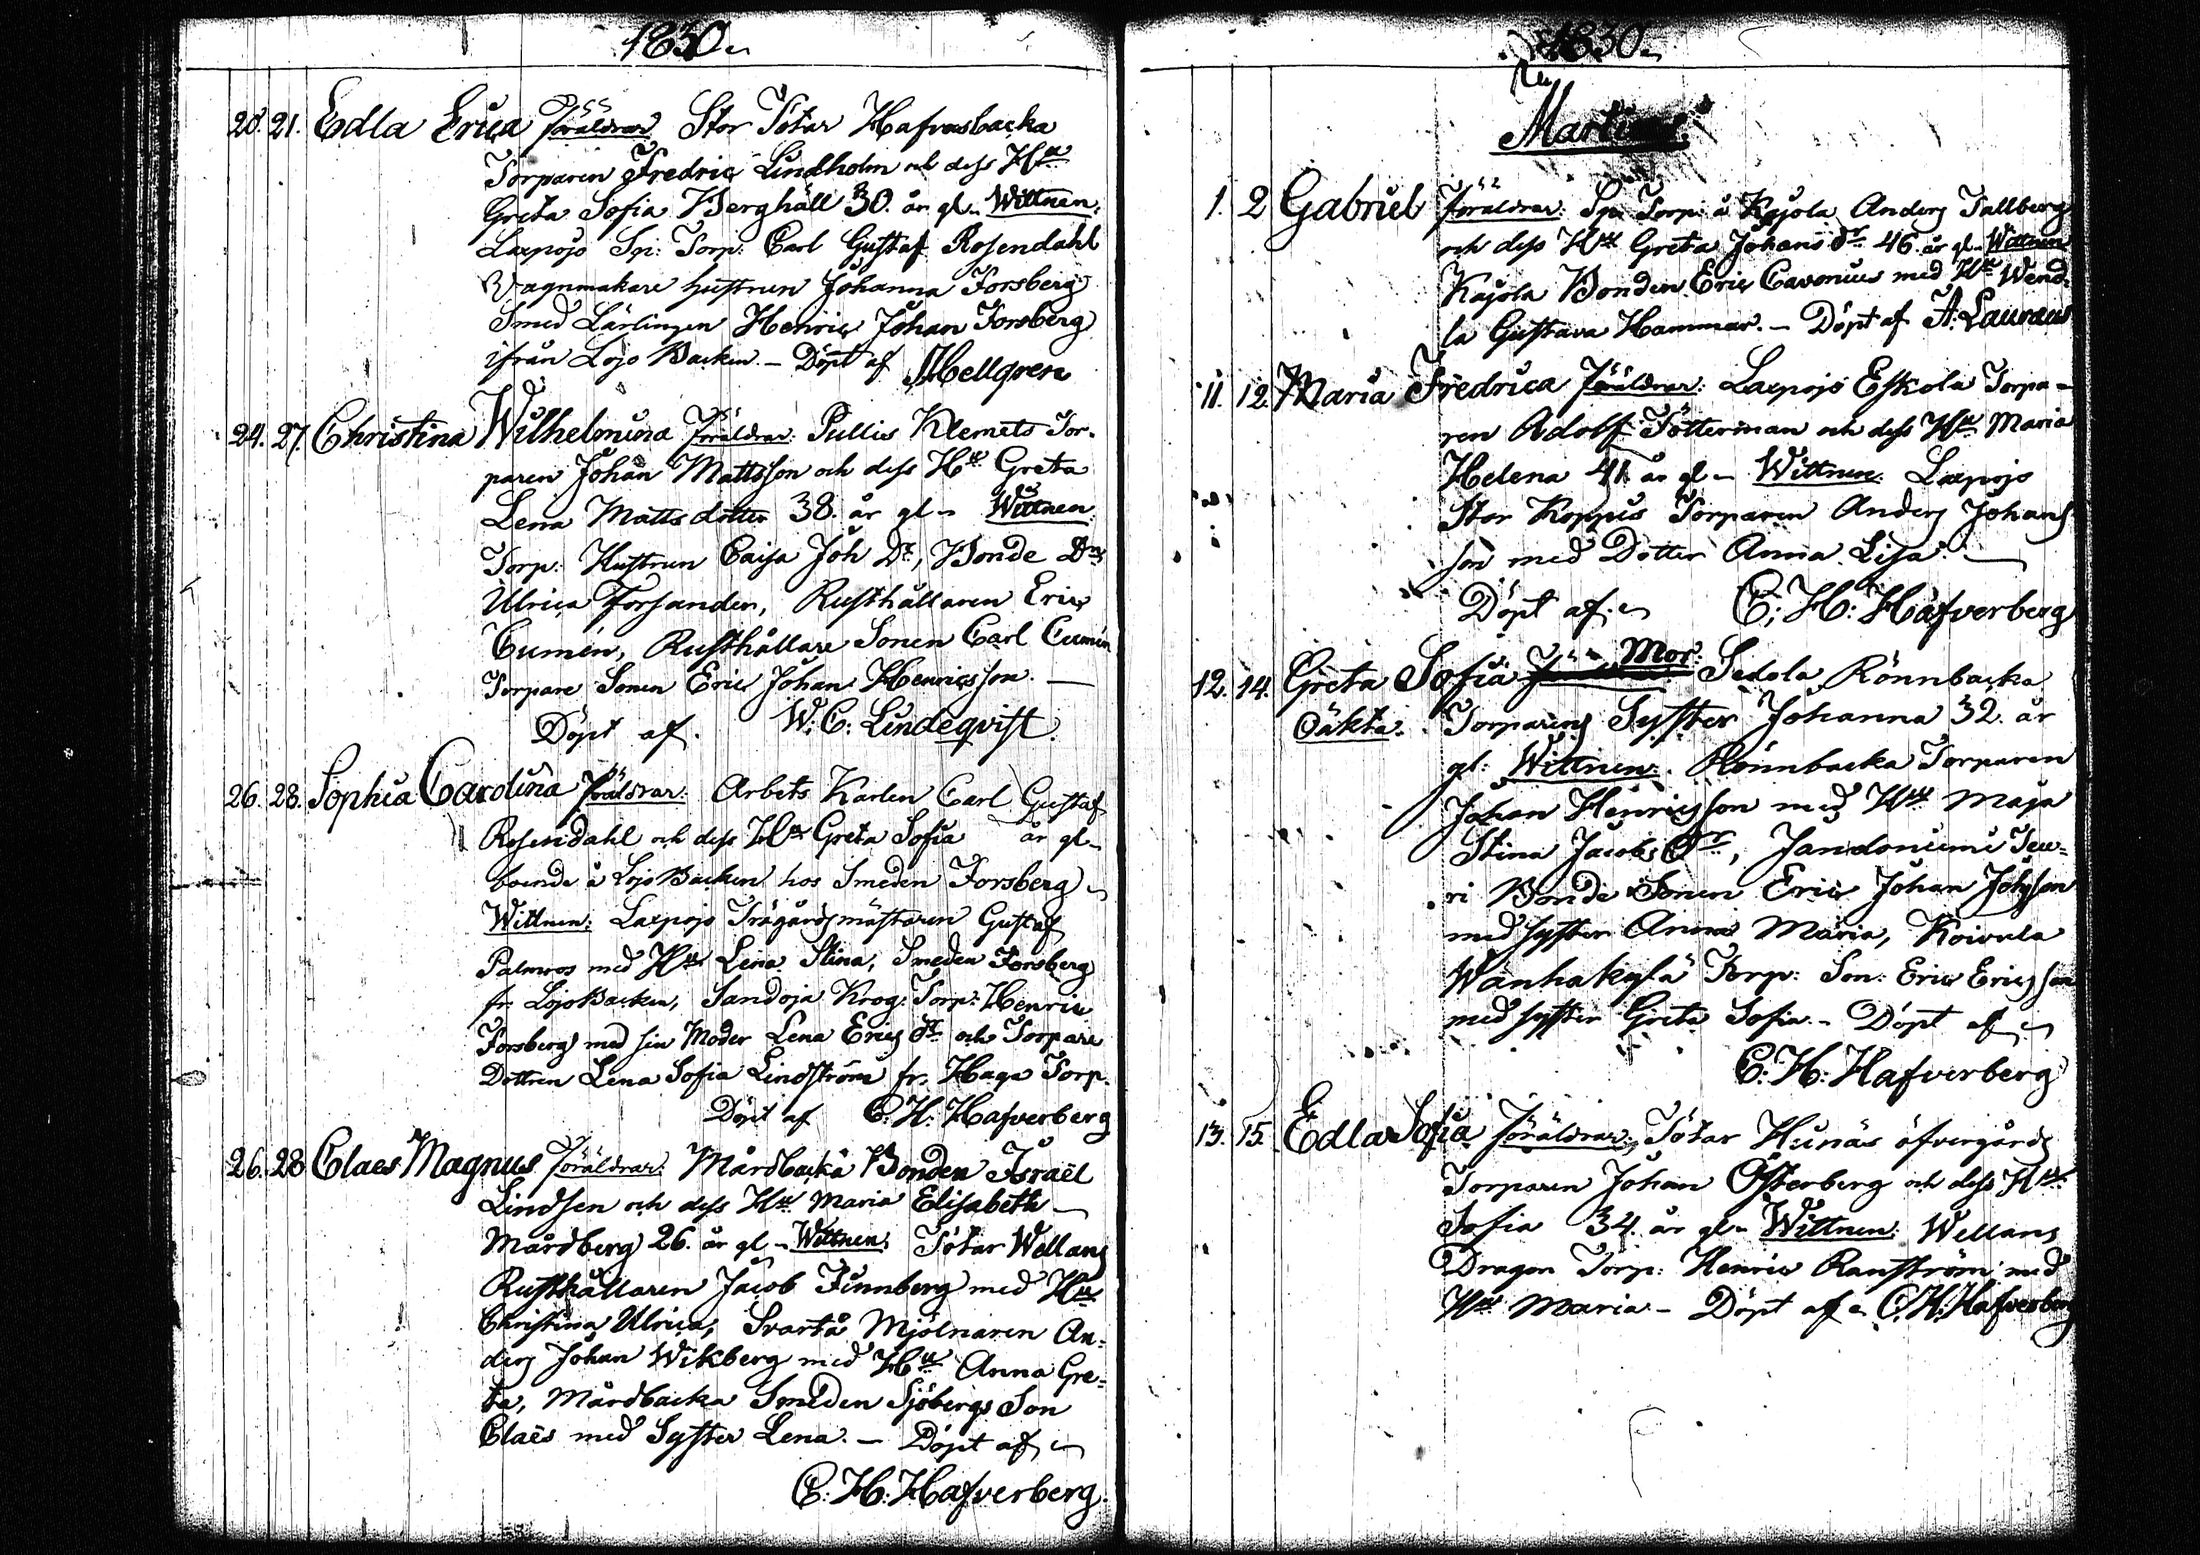 1830
20. 21. Edla Erica Föräldrar Stor Tötar Hafvasbacka
Torparen Fredric Lindholm och dess Hu
Greta Sofia Berghäll 30. år gl. Wittnen.
Laxpojo Sp: Torp: Carl Gustaf Rosendahl
Wagnmakare hustrun Johanna Forsberg
Smed Lärlingen Henric Johan Forsberg
ifrån Lojo Backen. – Döpt af Mellgren
24. 27. Christina Wilhelmina Föräldrar: Pullis Klemets Tor-
paren Johan Mattsson och dess Hu Greta
Lena Mattsdotter 38. år gl. Wittnen
Torp: Hustrun Caisa Joh Dr, Bonde Dr
Ulrica Forsander, Rusthållaren Eric
Cumén, Rusthållare Sonen Carl Cumén
Torpare Sonen Eric Johan Henricsson. —
Döpt af. W: C: Lindeqvist.
26. 28. Sophia Carolina Föräldrar: Arbets Karlen Carl Gustaf
Rosendahl och dess Hu Greta Sofia år gl
boende å Lojo Backen hos Smeden Forsberg
Wittnen: Laxpojo Trägårdsmästaren Gustaf
Palmros med Hu Lena Stina, Smeden Forsberg
fr. Lojo Backen, Sandoja Krog: Torp: Henric
Forsberg med sin Moder Lena Erics dr och Torpare
Dottren Lena Sofia Lindström fr. Haga Torp.
Döpt af C. H. Hafverberg
26. 28 Claes Magnus Föräldrar: Mårdbacka Bonden Israël
Lindsen och dess Hu Maria Elisabeth
Mårdberg 26. år gl – Wittnen: Tötar Wellans
Rusthållaren Jacob Finnberg med Hu
Christina Ulrica, Svartå Mjölnaren An-
ders Johan Wikberg med Hu Anna Gre-
ta, Mårdbacka Smeden Sjöbergs Son
Claës med Syster Lena. – Döpt af
C. H: Hafverberg.
1830
Martius.
1. 2 Gabriel Föräldrar: Sp: Torp: å Kajola Anders Tallberg
och dess Hu Greta Johans dr 46. år gl. Wittnen
Kajola Bonden Eric Cavonius med Hu Wend-
la Gustava Hammar. – Döpt af A: Lauraeus
11. 12. Maria Fredrica Föräldrar: Laxpojo Eskola Torpa-
ren Adolf Tötterman och dess Hu Maria
Helena 41 år gl – Wittnen. Laxpojo
Stor Koppis Torparen Anders Johans
son med Dotter Anna Lisa. —
Döpt af. C: H: Hafverberg
12. 14. Greta Sofia Mor: Sedola Rönnbacka
Oäkta. Torparens Syster Johanna 32. år
gl: Wittnen. Rönnbacka Torparen
Johan Henricsson med Hu Maja
Stina Jacobs Dr, Jandoniemi Teu-
ri Bonde Sonen Eric Johan Johsson
med syster Anna Maria, Koivula
Wanhakylä Torp: Son: Eric Ericsson
med syster Greta Sofia. – Döpt af
C: H: Hafverberg
13. 15. Edla Sofia Föräldrar: Tötar Hunäs öfvergårds
Torparen Johan Österberg och dess Hu
Sofia 34. år gl – Wittnen: Wellans
Dragon Torp: Henric Ranström med
Hu Maria – Döpt af C. H: Hafverberg